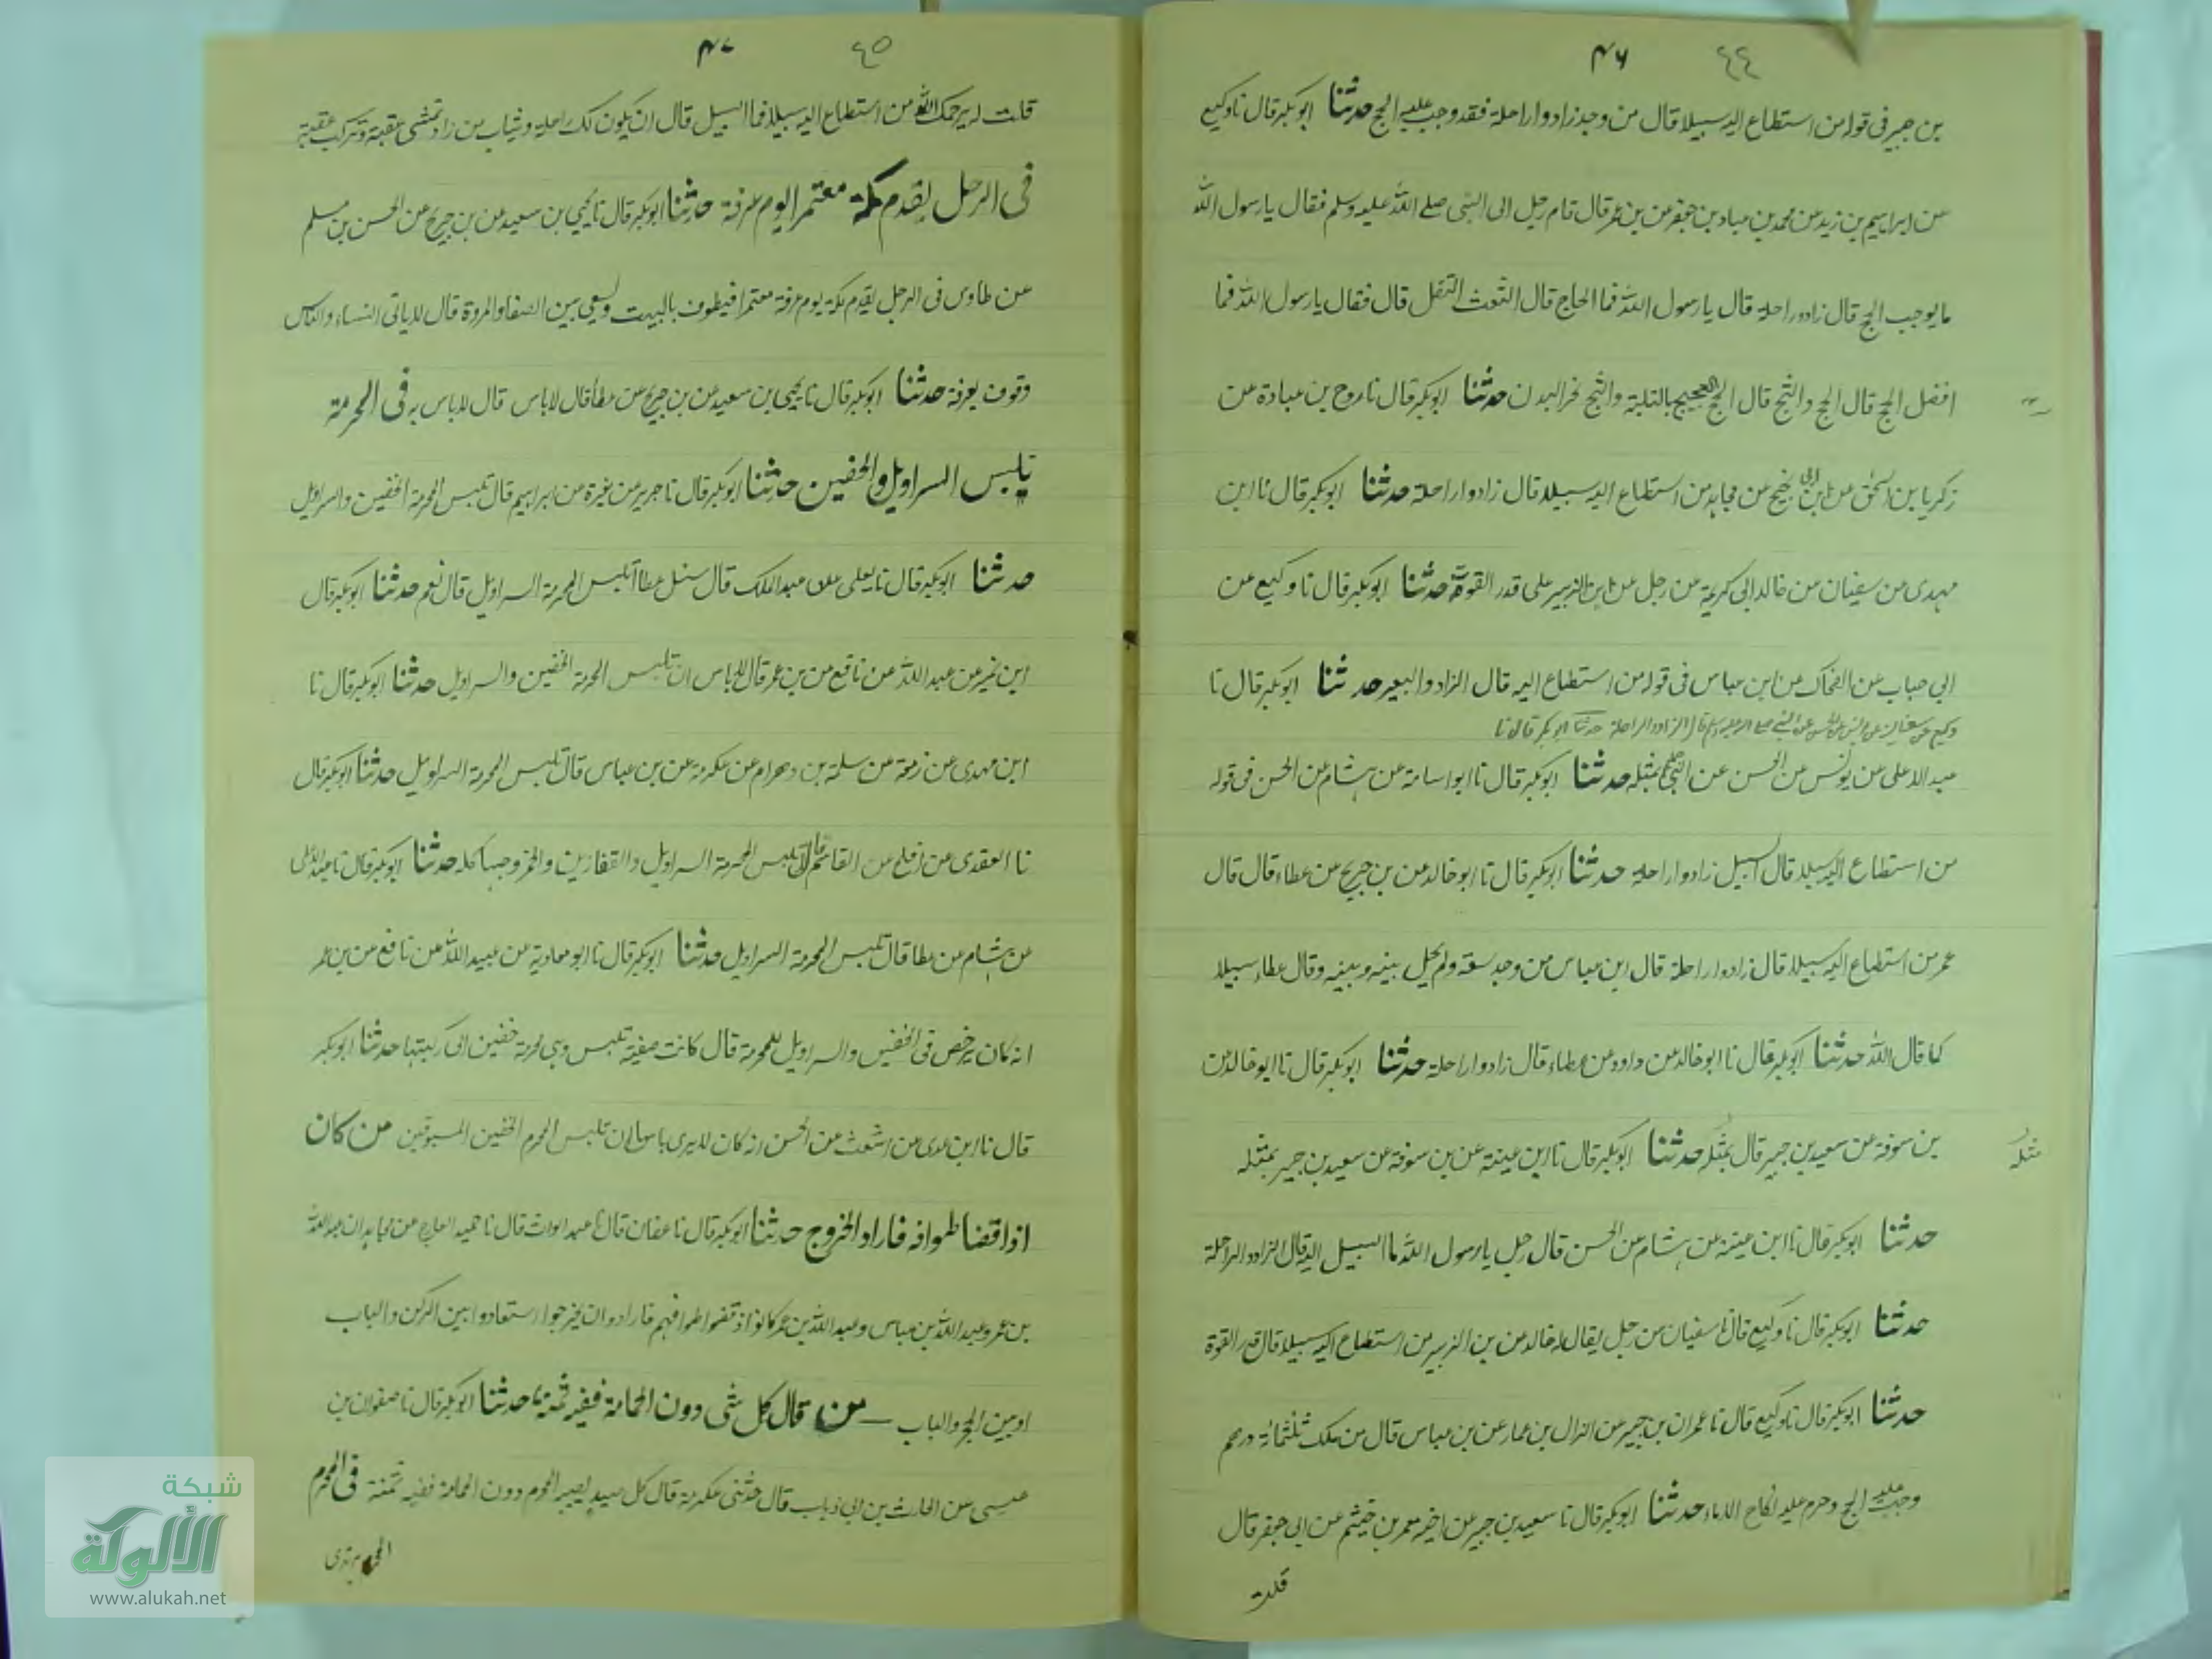 ٤٤ ۴۶
بن جبير في قوله من استطاع اليه سبيلا قال من وجد زادا وراحلة فقد وجب عليه الحج حدثنا ابوبكر قال نا وكيع
عن ابراهيم بن زيد عن محمد بن عباد بن جعفر عن بن عمر قال قام رجل الى النبى صلے الله عليه وسلم فقال يا رسول الله
ما يوجب الحج قال زاد وراحلة قال يا رسول الله فما الحاج قال الشعث التفل قال فقال يا رسول الله فما
افضل الحج قال العج والثج قال العج العجيج بالتلبية والثج نحر البدن حدثنا ابوبكر قال نا روح بن عبادة عن
زكريا بن اسحق عن بن ابى نجيح عن مجاهد من استطاع اليه سبيلا قال زادا وراحلة حدثنا ابوبكر قال نا ابن
مهدى عن سفيان عن خالد ابى كريمة عن رجل عن ابن الزبير على قدر القوة حدثنا ابوبكر قال نا وكيع عن
ابي جناب عن الضحاك عن ابن عباس فى قوله من استطاع اليه قال الزاد والبعير حدثنا ابوبكر قال نا
وكيع عن سفيان عن يونس عن الحسن عن النبى صلى الله عليه وسلم قال الزاد والراحلة حدثنا ابوبكر قال نا
عبد الاعلى عن يونس عن الحسن عن النبى صلعم بمثله حدثنا ابوبكر قال نا ابو اسامة عن هشام عن الحسن فى قوله
من استطاع اليه سبيلا قال السبيل زادا وراحلة حدثنا ابوبكر قال نا ابو خالد عن بن جريج عن عطاء قال قال
عمر من استطاع اليه سبيلا قال زادا وراحلة قال ابن عباس من وجد سعة ولم يحل بينه وبينه وقال عطاء سبيلا
كما قال الله حدثنا ابوبكر قال نا ابو خالد عن داود عن عطاء قال زادا وراحلة حدثنا ابوبكر قال نا ابو خالد عن
بن سوقة عن سعيد بن جبير قال بمثله حدثنا ابوبكر قال نا ابن عيينة عن بن سوقة عن سعيد بن جبير بمثله
مثله
حدثنا ابوبكر قال نا ابن عيينة عن هشام عن الحسن قال رجل يا رسول الله ما السبيل اليه قال الزاد والراحلة
حدثنا ابوبكر قال نا وكيع قال نا سفيان عن رجل يقال له خالد عن بن الزبير من استطاع اليه سبيلا قال قدر القوة
حدثنا ابوبكر قال نا وكيع قال نا عمران بن جبير عن النزال بن عمار عن بن عباس قال من ملك ثلثمائة درهم
وجب عليه الحج وحرم عليه نكاح الاماء حدثنا ابوبكر قال نا سعيد بن جبير عن اخيه معمر بن خيثم عن ابى جعفر قال
قلت
٤٥ ۴۷
قلت له يرحمك الله من استطاع اليه سبيلا فما السبيل قال ان يكون لك راحلة وثياب من زاد تمشى عقبة وتركب عقبة
فى الرجل يقدم مكة معتمرا يوم عرفة حدثنا ابوبكر قال نا يحيى بن سعيد عن بن جريج عن الحسن بن مسلم
عن طاوس فى الرجل يقدم مكة يوم عرفة معتمرا فيطوف بالبيت ويسعى بين الصفا والمروة قال لا ياتى النساء والناس
وقوف بعرفة حدثنا ابوبكر قال نا يحيى بن سعيد عن بن جريج عن عطاء قال لا باس قال لا باس به فى المحرمة
تلبس السراويل والخفين حدثنا ابوبكر قال نا جرير عن مغيرة عن ابراهيم قال تلبس المحرمة الخفين والسراويل
حدثنا ابوبكر قال نا يعلى عن عبد الملك قال سئل عطا أتلبس المحرمة السراويل قال نعم حدثنا ابوبكر قال
ابن نمير عن عبد الله عن نافع عن بن عمر قال لا باس ان تلبس المحرمة الخفين والسراويل حدثنا ابوبكر قال نا
ابن مهدى عن زمعة عن سلمة بن وهرام عن عكرمة عن بن عباس قال تلبس المحرمة السراويل حدثنا ابوبكر قال
نا العقدى عن افلح عن القاسم قال تلبس المحرمة السراويل والقفازين والخمر وجهها كله حدثنا ابوبكر قال نا عبد الاعلى
عن هشام عن عطا قال تلبس المحرمة السراويل حدثنا ابوبكر قال نا ابو معاوية عن عبيد الله عن نافع عن بن عمر
انه كان يرخص فى الخفين والسراويل للمحرمة قال كانت صفية تلبس وهى محرمة خفين الى ركبتيها حدثنا ابوبكر
قال نا ابن عدى عن اشعث عن الحسن انه كان لا يرى باسا ان تلبس المحرم الخفين المسبوقين من كان
اذا قضا طوافه فاراد الخروج حدثنا ابوبكر قال نا عفان قال نا عبد الوارث قال نا حميد الاعرج عن مجاهد ان عبد الله
بن عمرو وعبد الله بن عباس وعبد الله بن عمر كانوا اذ قضوا طوافهم فارادوا ان يخرجوا استعاذوا بين الركن والباب
او بين الحجر والباب — من قال كل شى دون الحمامة ففيه ثمنه حدثنا ابوبكر قال نا صفوان بن
عيسى عن الحارث بن ابى ذباب قال حدثنى عكرمة قال كل صيد يصيبه المحرم دون الحمامة ففيه ثمنه فى المحرم
شبكة
الألوكة
www.alukah.net